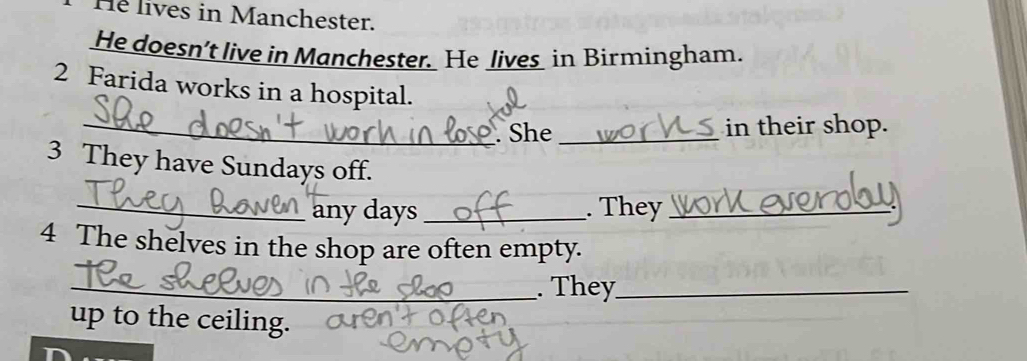 He lives in Manchester.
He doesn't live in Manchester. He lives in Birmingham.
2 Farida works in a hospital.
She doesn't work in . She works in their shop.
3 They have Sundays off.
They haven't any days off. They work everday.
4 The shelves in the shop are often empty.
the sheelves in the shop. They
up to the ceiling. aren't often
empty